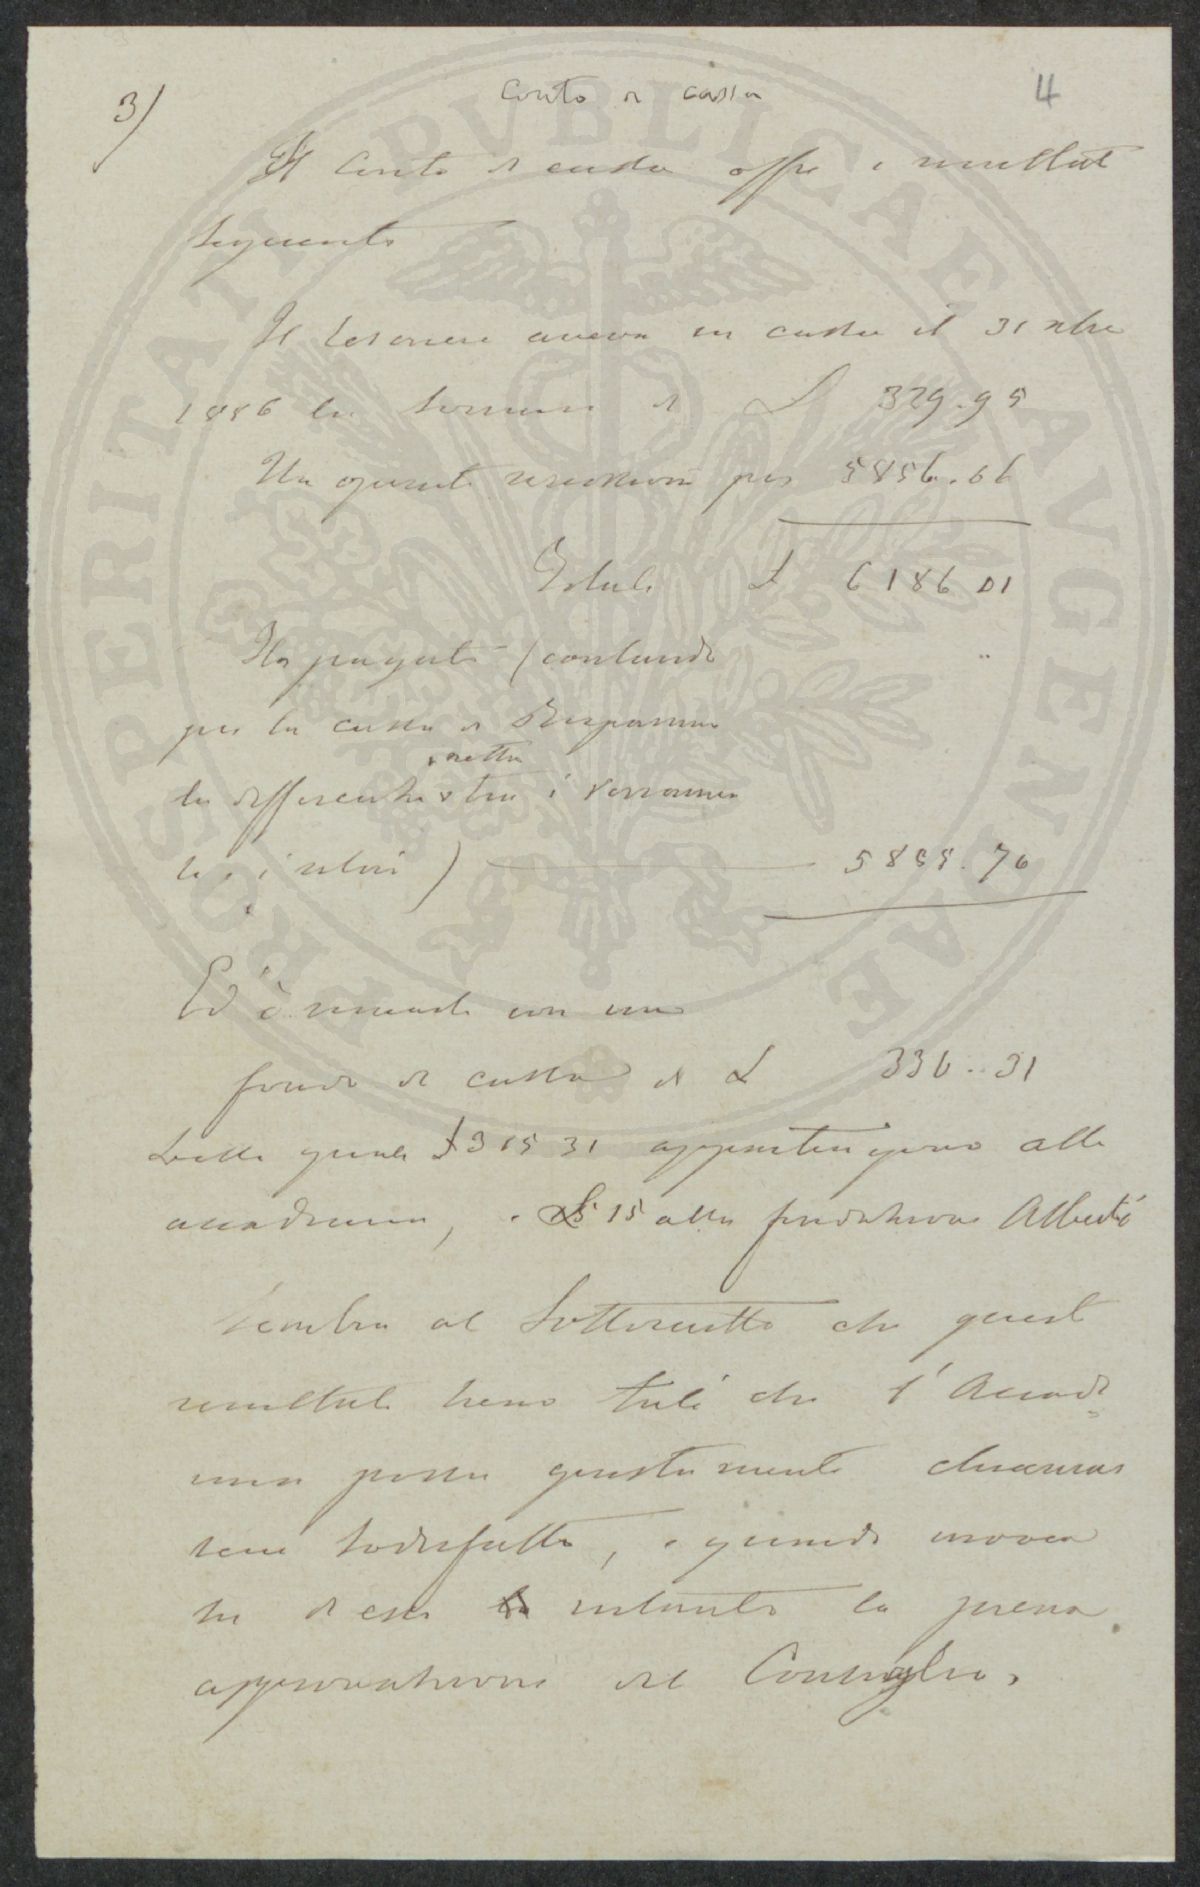 3/
Conto di cassa
4
Il Conto di cassa offre i resultati
seguenti
Il tesoriere aveva in cassa il 31 xbre
1886 la somma di £ 329.95
Ha operato riscossioni per 5856.06
Totale £ 6186 01
Ha pagato (contando
per la cassa di Risparmio
netta
la differenza tra i versamen
ti e i ritiri) 5855.70
Ed è rimasto con un
fondo di cassa di £ 330..31
delle quali £ 315 31 appartengono alla
accademia, e £ 15 alla fondazione Alberti
Sembra al Sottoscritto che questi
resultati sieno tali che l'Accade
mia possa giustamente chiamar
sene sodisfatta, e quindi
di essi la piena
approvazione del Consiglio.
PROSPERITATI PVBLICAE AVGENDAE